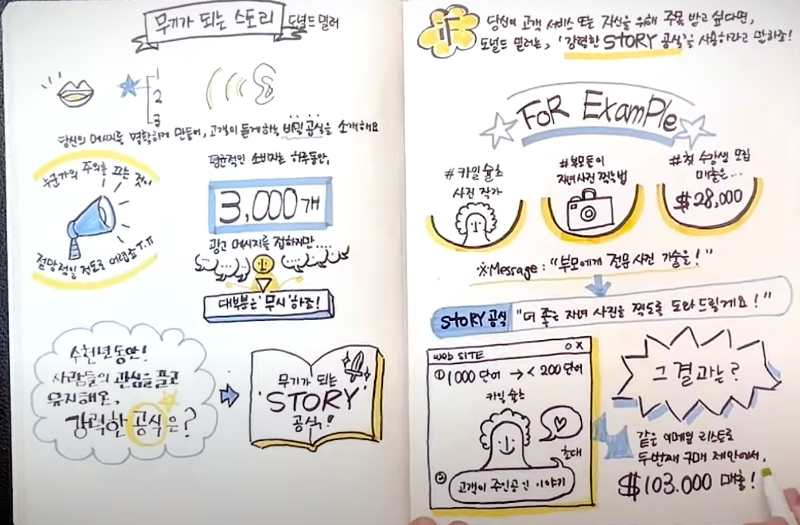 무기가 되는 스토리 도널드 밀러
1
2
3
당신의 메시지를 명확하게 만들어, 고객이 듣게하는 비밀 공식을 소개해요
누군가의 주의를 끄는 것이
절망적일 정도로 어렵죠 T.T
평균적인 소비자는 하루동안,
3,000개
광고 메시지를 접하지만...
대부분은 '무시'하죠!
수천년동안!
사람들의 관심을 끌고
유지해온,
강력한 공식은?
무기가 되는
'STORY'
공식!
IF
당신이 고객 서비스 또는 자신을 위해 주목 받고 싶다면,
도널드 밀러는, '강력한 STORY 공식'을 사용하라고 말하죠!
FOR EXamPlE
#카일 슐츠
사진 작가
#부모들이
자녀사진 찍는법
#첫 수강생 모집
매출은...
$28,000
※Message: "부모에게 전문 사진 기술을!"
STORY 공식 "더 좋은 자녀 사진을 찍도록 도와드릴게요!"
WEB SITE O X
① 1000 단어 → < 200 단어
카일 슐츠
초대
② 고객이 주인공인 이야기
그 결과는?
같은 이메일 리스트로
두번째 구매 제안에서,
$103.000 매출!